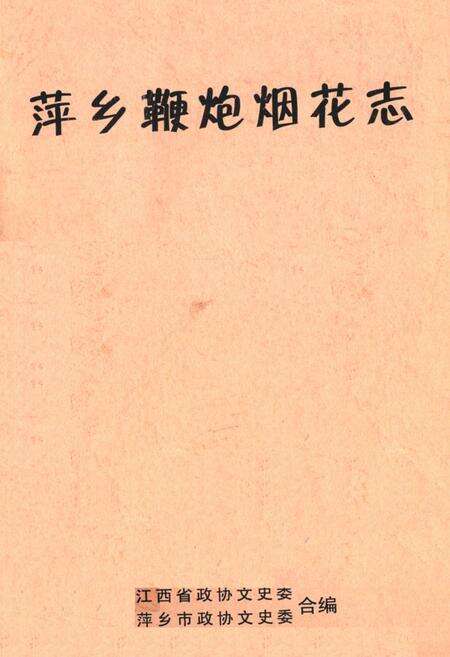 萍乡鞭炮烟花志
江西省政协文史委
萍乡市政协文史委 合编